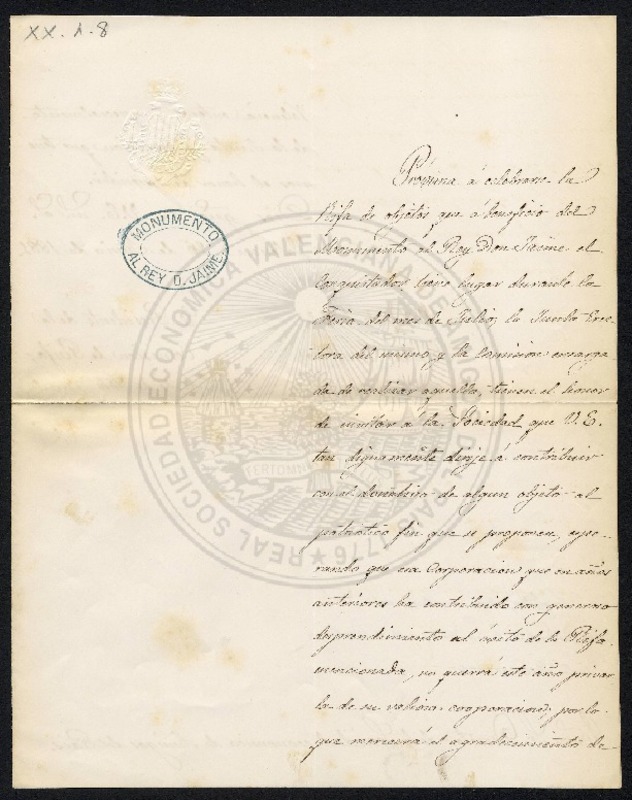 XX. A-8
MONUMENTO
AL REY D. JAIME.
REAL SOCIEDAD ECONOMICA VALENCIANA DE AMIGOS DEL PAIS 1776
Próxima á celebrarse la
Rifa de objetos que á beneficio del
Monumento al Rey Don Jaime el
Conquistador tiene lugar durante la
Feria del mes de Julio, la Junta Erec
tora del mismo y la Comision encarga
da de realizar aquella, tienen el honor
de invitar á la Sociedad que V. E.
tan dignamente dirije á contribuir
con el donativo de algun objeto al
patriótico fin que se proponen, espe-
rando que esa Corporacion que en años
anteriores ha contribuido con generoso
desprendimiento al éxito de la Rifa
mencionada, no querrá este año privar
la de su valiosa cooperacion, por lo
que merecerá el agradecimiento de-